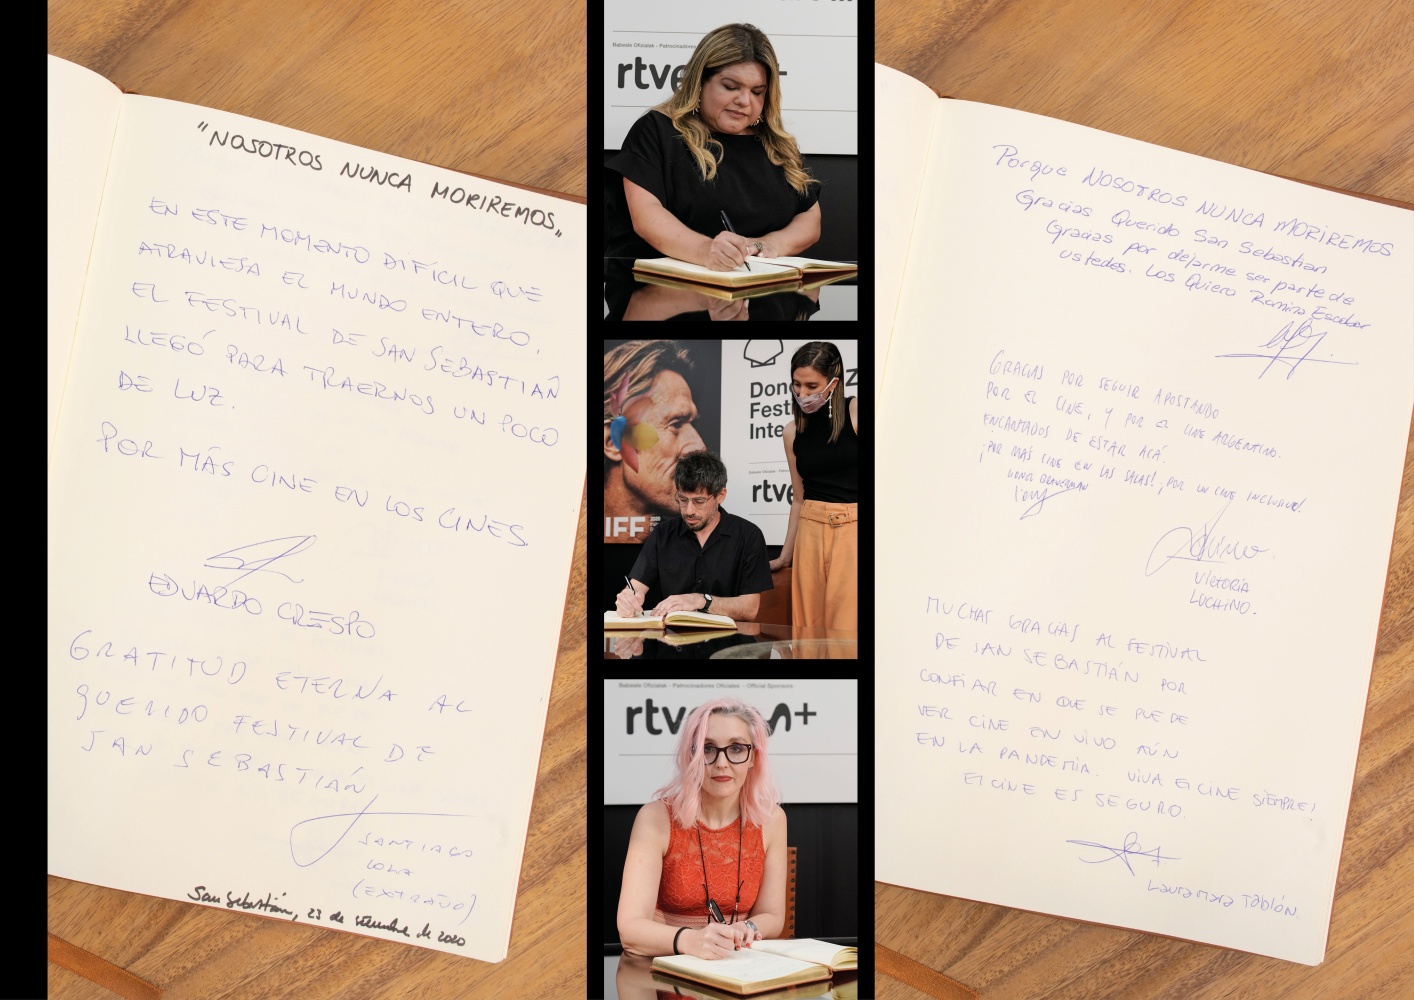 "NOSOTROS NUNCA MORIREMOS"
EN ESTE MOMENTO DIFÍCIL QUE
ATRAVIESA EL MUNDO ENTERO,
EL FESTIVAL DE SAN SEBASTIÁN
LLEGÓ PARA TRAERNOS UN POCO
DE LUZ.
POR MÁS CINE EN LOS CINES.
EDUARDO CRESPO
GRATITUD ETERNA AL
QUERIDO FESTIVAL DE
SAN SEBASTIÁN
SANTIAGO
LOZA
(EXTRAÑO)
San Sebastián, 23 de setiembre de 2020
Babesle Ofizialak - Patrocinadores
rtve
Donos
Festi
Inte
rtve
IFF
Babesle Ofizialak - Patrocinadores Oficiales - Official Sponsors
rtve M+
Porque NOSOTROS NUNCA MORIREMOS
Gracias Querido San Sebastian
Gracias por dejarme ser parte de
ustedes. Los Quiero Romina Escobar
GRACIAS POR SEGUIR APOSTANDO
POR EL CINE, Y POR EL CINE ARGENTINO.
ENCANTADOS DE ESTAR ACÁ.
¡POR MÁS CINE EN LAS SALAS! ¡POR UN CINE INCLUSIVO!
VICTORIA
LUCHINO.
MUCHAS GRACIAS AL FESTIVAL
DE SAN SEBASTIÁN POR
CONFIAR EN QUE SE PUEDE
VER CINE EN VIVO AÚN
EN LA PANDEMIA. VIVA EL CINE SIEMPRE!
El CINE ES SEGURO.
Laura Mara Tablón